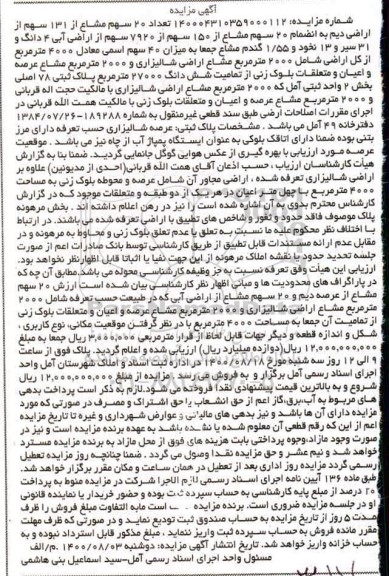 آگهی مزایده
شماره مزایده: 140004310359000112 تعداد 20 سهم مشاع از 131 سهم از
اراضی دیم به انضمام 20 سهم مشاع از 150 سهم از 7920 سهم از اراضی آبی 4 دانگ و
31 سیر و 13 نخود و 1/55 گندم مشاع جمعا به میزان 40 سهم اسمی معادل 4000 مترمربع
از کل اراضی شامل 2000 مترمربع مشاع اراضی شالیزاری و 2000 مترمربع مشاع عرصه
و اعیان و متعلقات بلوک زنی از تمامیت شش دانگ 27000 مترمربع پلاک ثبتی 78 اصلی
بخش 2 واحد ثبتی آمل که 2000 مترمربع مشاع اراضی شالیزاری با مالکیت حجت اله قربانی
و 2000 مترمربع مشاع عرصه و اعیان و متعلقات بلوک زنی با مالکیت همت الله قربانی در
اجرای مقررات اصلاحات ارضی طبق سند قطعی غیرمنقول به شماره 189288-1384/07/26
دفترخانه 49 آمل می باشد . مشخصات پلاک ثبتی: عرصه شالیزاری حسب تعرفه دارای مرز
بتنی بوده ضمنا دارای اتاقک بلوکی به عنوان ایستگاه پمپاژ آب از چاه نیز می باشد . موقعیت
عرصه مورد ارزیابی با بهره گیری از عکس هوایی گوگل جانمایی گردید. ضمنا بنا به گزارش
هیأت کارشناسان ارزیاب ، حسب اذعان آقای همت الله قربانی(احدی از مدیونین) علاوه بر
اراضی شالیزاری تعرفه شده ، اراضی مجاور آن شامل عرصه و محوطه بلوک زنی به مساحت
4000 مترمربع با چهل متر اعیان در هر یک از دو طبقه و متعلقات موجود که در گزارش
کارشناس محترم بدوی به آن اشاره شده است را نیز در رهن اعلام داشته اند . بخش مرهونه
پلاک موصوف فاقد حدود و ثغور و شاخص های تطبیق با اراضی تعرفه شده می باشند. در ارتباط
با اختلاف نظر محکوم علیه ما نسبت به تعلق یا عدم تعلق بلوک زنی و محاوط به مرهونه و در
مقابل عدم ارائه مستندات قابل تطبیق از طریق کارشناسی توسط بانک صادرات اعم از صورت
جلسه تحدید حدود یا نقشه املاک مرهونه از این جهت نفیا یا اثباتا قابل اظهارنظر نخواهد بود.
ارزیابی این هیأت وفق تعرفه نسبت به جز وظیفه کارشناسی محوله می باشد.مطابق آن چه که
در پاراگراف های محدودیت ها و مبانی اظهار نظر کارشناسی بیان شده است ارزش 20 سهم
مشاع از عرصه دیم و 20 سهم مشاع از اراضی آبی که در طبیعت حسب تعرفه شامل 2000
مترمربع مشاع اراضی شالیزاری و 2000 مترمربع مشاع عرصه و اعیان و متعلقات بلوک زنی
از تمامیت آن جمعا به مساحت 4000 مترمربع با در نظر گرفتن موقعیت مکانی، نوع کاربری ،
شکل و اندازه قطعه و دیگر جهات قابل لحاظ از قرار مترمربعی 3,000,000 ریال جمعا به مبلغ
12,000,000,000 ریال(دوازده میلیارد ریال) ارزیابی شده و اعلام گردید. پلاک فوق از ساعت
9 الی 12 روز سه شنبه مورخ 1400/08/18 در اداره ثبت اسناد و املاک شهرستان آمل واحد
اجرای اسناد رسمی آمل برگزار و به فروش می رسد .مزایده از مبلغ 12,000,000,000 ریال
شروع و به بالاترین قیمت پیشنهادی نقدا فروخته می شود.لازم به ذکر است پرداخت بدهی
های مربوط به آب،برق،گاز اعم از حق انشعاب یا حق اشتراک و مصرف در صورتی که مورد
مزایده دارای آن ها باشد و نیز بدهی های مالیاتی و عوارض شهرداری و غیره تا تاریخ مزایده
اعم از این که رقم قطعی آن معلوم شده یا نشده باشد به عهده برنده مزایده است و نیز در
صورت وجود مازاد،وجوه پرداختی بابت هزینه های فوق از محل مازاد به برنده مزایده مسترد
خواهد شد و نیم عشر و حق مزایده نقدا وصول می گردد . ضمنا چنانچه روز مزایده تعطیل
رسمی گردد مزایده روز اداری بعد از تعطیل در همان ساعت و مکان مقرر برگزار خواهد شد.
طبق ماده 136 آیین نامه اجرای اسناد رسمی لازم الاجرا شرکت در مزایده منوط به پرداخت
20 درصد از مبلغ پایه کارشناسی به حساب سپرده ثبت بوده و حضور خریدار یا نماینده قانونی
او در جلسه مزایده ضروری است. برنده مزایده است مابه التفاوت مبلغ فروش را ظرف
مدت 5 روز از تاریخ مزایده به حساب صندوق ثبت تودیع نمایند و در صورتی که ظرف مهلت
مقرر مانده فروش به حساب سپرده ثبت واریز ننماید ، مبلغ مذکور قابل استرداد نبوده و به
حساب خزانه واریز خواهد شد. تاریخ انتشار آگهی مزایده: دوشنبه 1400/08/03 .م/الف
مسئول واحد اجرای اسناد رسمی آمل-سید اسماعیل بنی هاشمی